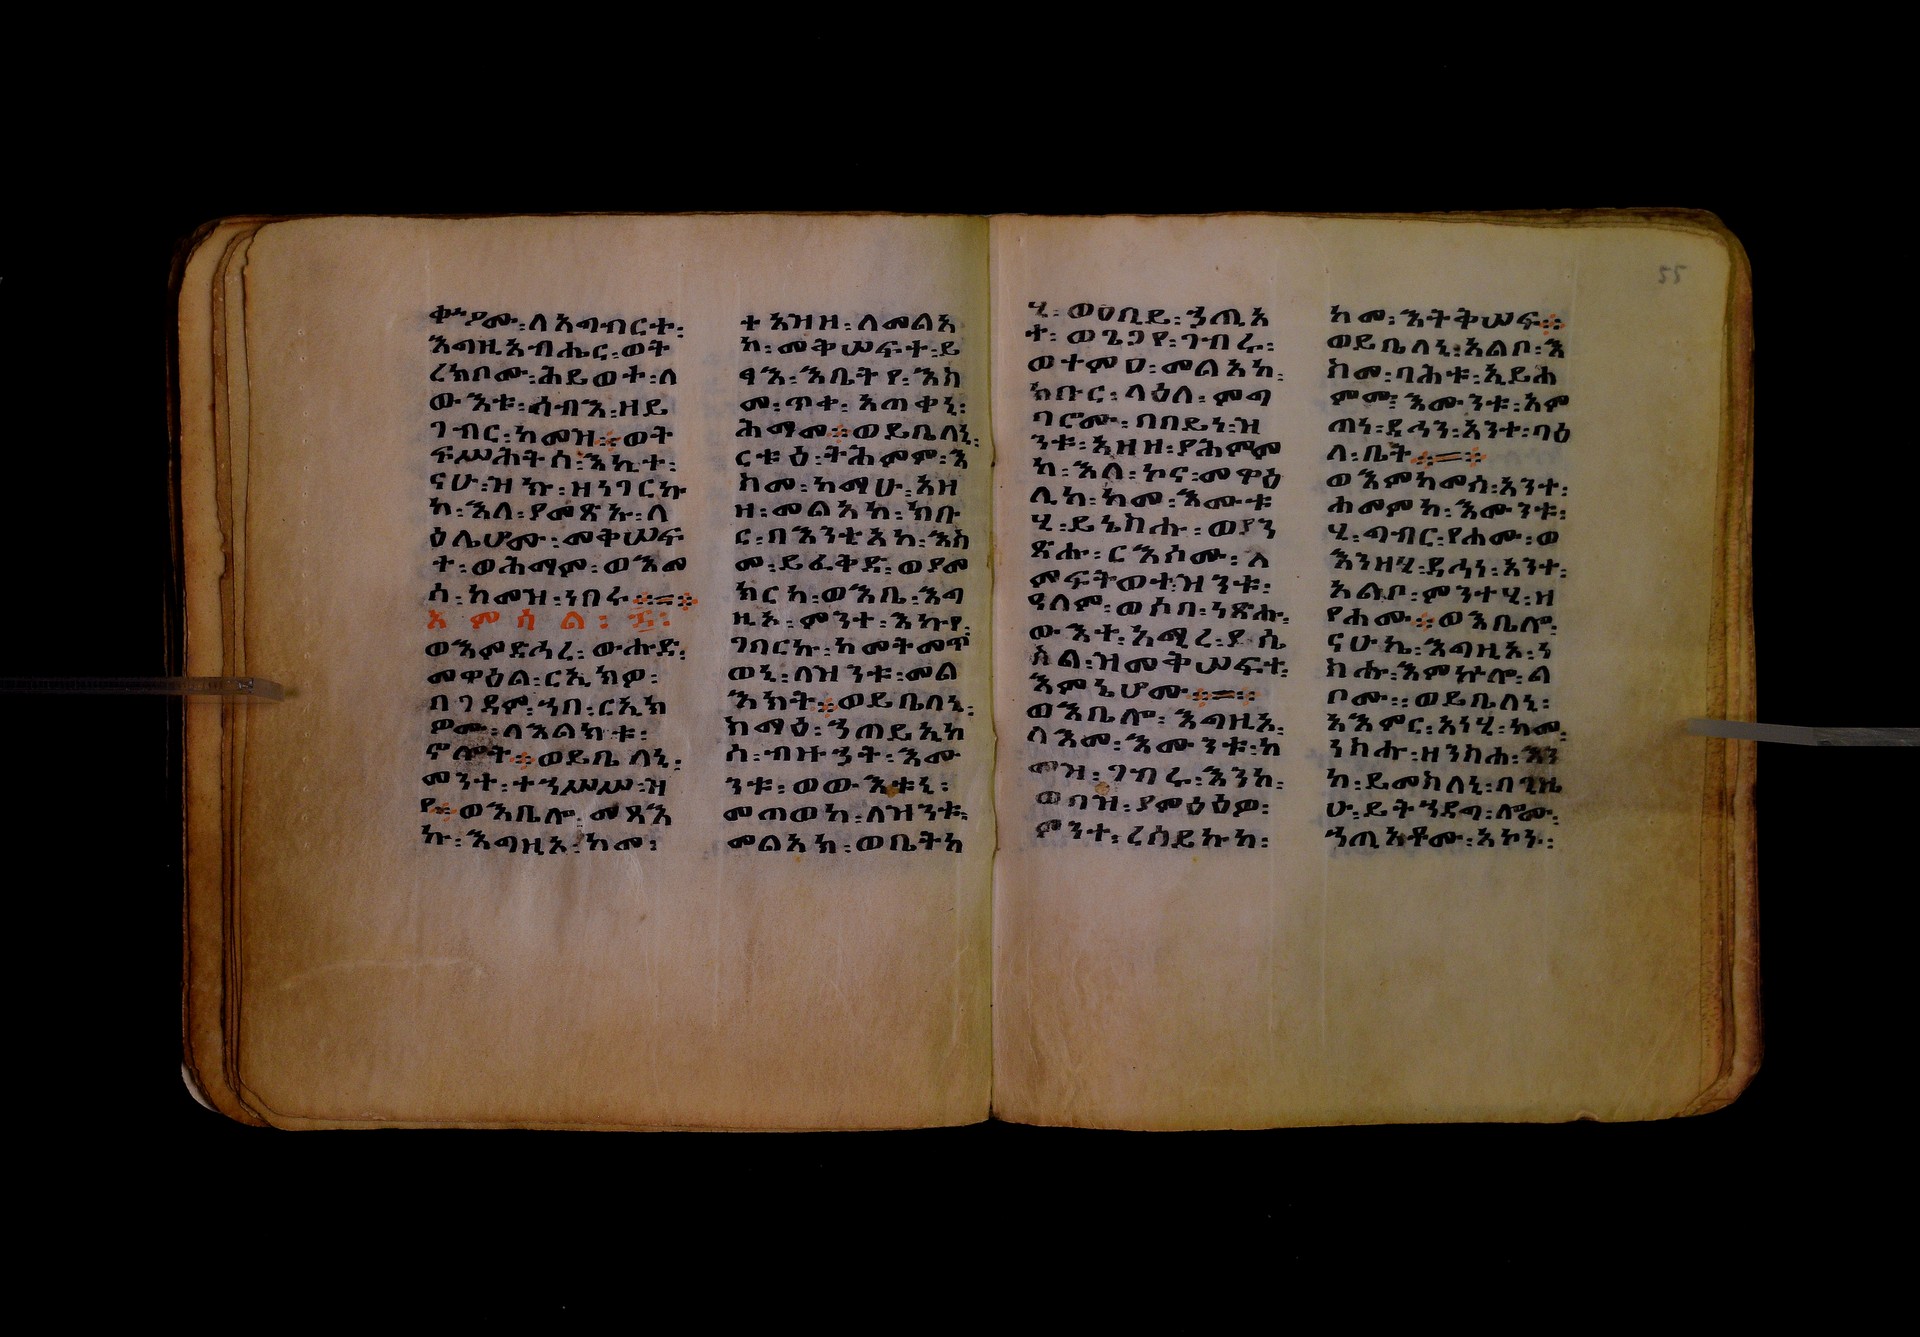 ቀሦሙ፡ ለአግብርተ፡
እግዚአብሔር፡ ወት
ረክቦሙ፡ ሕይወት፡ ለ
ውእቱ፡ ሰብእ፡ ዘይ
ገብር፡ ከመዝ። ወት
ፍሥሕት ሰ፡ እኪተ፡
ናሁ፡ ዝኵ፡ ዘነገርኩ
ከ፡ እለ፡ ያመጽኡ፡ ላ
ዕሌሆሙ፡ መቅሠፍ
ተ፡ ወሕማም፡ ወእመ
ሰ፡ ከመዝ፡ ነበሩ።
አምሳል፡ ፯፡
ወእምድኅረ፡ ውሑድ፡
መዋዕል፡ ርኢክዎ፡
በገዳም፡ ኀበ፡ ርኢክ
ዎሙ፡ ለእልክቱ፡
ኖሎት። ወይቤለኒ፡
ምንተ፡ ተኀሥሥ፡ ዝ
የ። ወእቤሎ፡ መጻእ
ኩ፡ እግዚኦ፡ ከመ፡
ተአዝዘ፡ ለመልአ
ክ፡ መቅሠፍተ፡ ይ
ፃእ፡ እቤትየ፡ እስ
መ፡ ጥቀ፡ አጠቀኒ፡
ሕማመ። ወይቤለኒ፡
ርቱዕ፡ ትሕምም፡ እ
ስመ፡ ከማሁ፡ አዘ
ዘ፡ መልአክ፡ ክቡ
ር፡ በእንቲአከ፡ እስ
መ፡ ይፈቅድ፡ ወያመ
ክርከ፡ ወእቤ፡ እግ
ዚኦ፡ ምንተ፡ እኩየ፡
ገበርኩ፡ ከመትመጥ
ወኒ፡ ለዝንቱ፡ መል
እክት። ወይቤለኒ፡
ስማዕ፡ ኀጠይኢከ
ሰ፡ ብዙኅት፡ እሙ
ንቱ፡ ወውእቱኒ፡
መጠወከ፡ ለዝንቱ፡
መልአክ፡ ወቤትከ
ሂ፡ ወዐቢይ፡ ኀጢአ
ተ፡ ወጌጋየ፡ ገብሩ፡
ወተምዐ፡ መልአክ፡
ክቡር፡ ላዕለ፡ ምግ
ባሮሙ፡ በበይነ፡ ዝ
ንቱ፡ አዘዘ፡ ያሕምም
ከ፡ እለ፡ ኮና፡ መዋዕ
ሊከ፡ ከመ፡ እሙቱ
ሂ፡ ይኔስሑ፡ ወያን
ጽሑ፡ ርእሶሙ፡ ለ
ምፍትወተ፡ ዝንቱ፡
ዓለም፡ ወሶበ፡ ነጽሑ፡
ውእተ፡ አሚረ፡ ይሴ
ስል፡ ዝመቅሠፍተ፡
እምኔሆሙ።
ወእቤሎ፡ እግዚኦ፡
ለእመ፡ እሙንቱ፡ ከ
መዝ፡ ገብሩ፡ እንከ፡
ወባዝ፡ ያምዕዕዎ፡
ምንተ፡ ረሰይኩከ፡
ከመ፡ እትቅሠፍ።
ወይቤለኒ፡ አልቦ፡ እ
ስመ፡ ባሕቱ፡ ኢይሕ
ምሙ፡ እሙንቱ፡ እም
ጠነ፡ ደኃን፡ አንተ፡ ባዕ
ለ፡ ቤት።
ወእምከመሰ፡ አንተ፡
ሐመምከ፡ እሙንቱ፡
ሂ፡ ግብር፡ የሐሙ፡ ወ
እንዘሂ፡ ደኃነ፡ አንተ፡
አልቦ፡ ምንተሂ፡ ዘ
የሐሙ። ወእቤሎ፡
ናሁኬ፡ እግዚኦ፡ ነ
ስሑ፡ እምኵሎ፡ ል
ቦሙ። ወይቤለኒ፡
አእምር፡ አነሂ፡ ከመ፡
ነስሑ፡ ዘንስሐ፡ እን
ከ፡ ይመስለኒ፡ በጊዜ
ሁ፡ ይትኀደግ፡ ሎሙ፡
ኀጢአቶሙ፡ አኮኑ፡